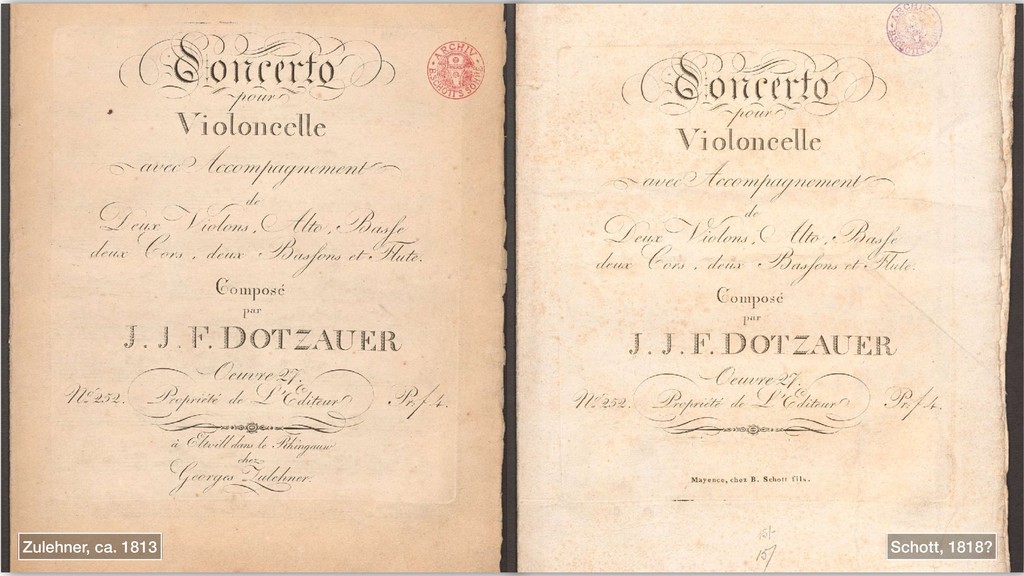 Concerto
pour
Violoncelle
avec Accompagnement
de
Deux Violons, Alto, Basse
deux Cors, deux Bassons et Flute.
Composé
par
J. J. F. DOTZAUER
Oeuvre 27.
No. 252. Propriété de L'Editeur Pr. f 4.
à Eltvill dans le Rhingau
chez
Georges Zulehner.
ARCHIV B. SCHOTT'S SÖHNE
Zulehner, ca. 1813
Concerto
pour
Violoncelle
avec Accompagnement
de
Deux Violons, Alto, Basse
deux Cors, deux Bassons et Flute.
Composé
par
J. J. F. DOTZAUER
Oeuvre 27.
No. 252. Propriété de L'Editeur Pr. f 4.
Mayence, chez B. Schott fils.
ARCHIV
157
Schott, 1818?